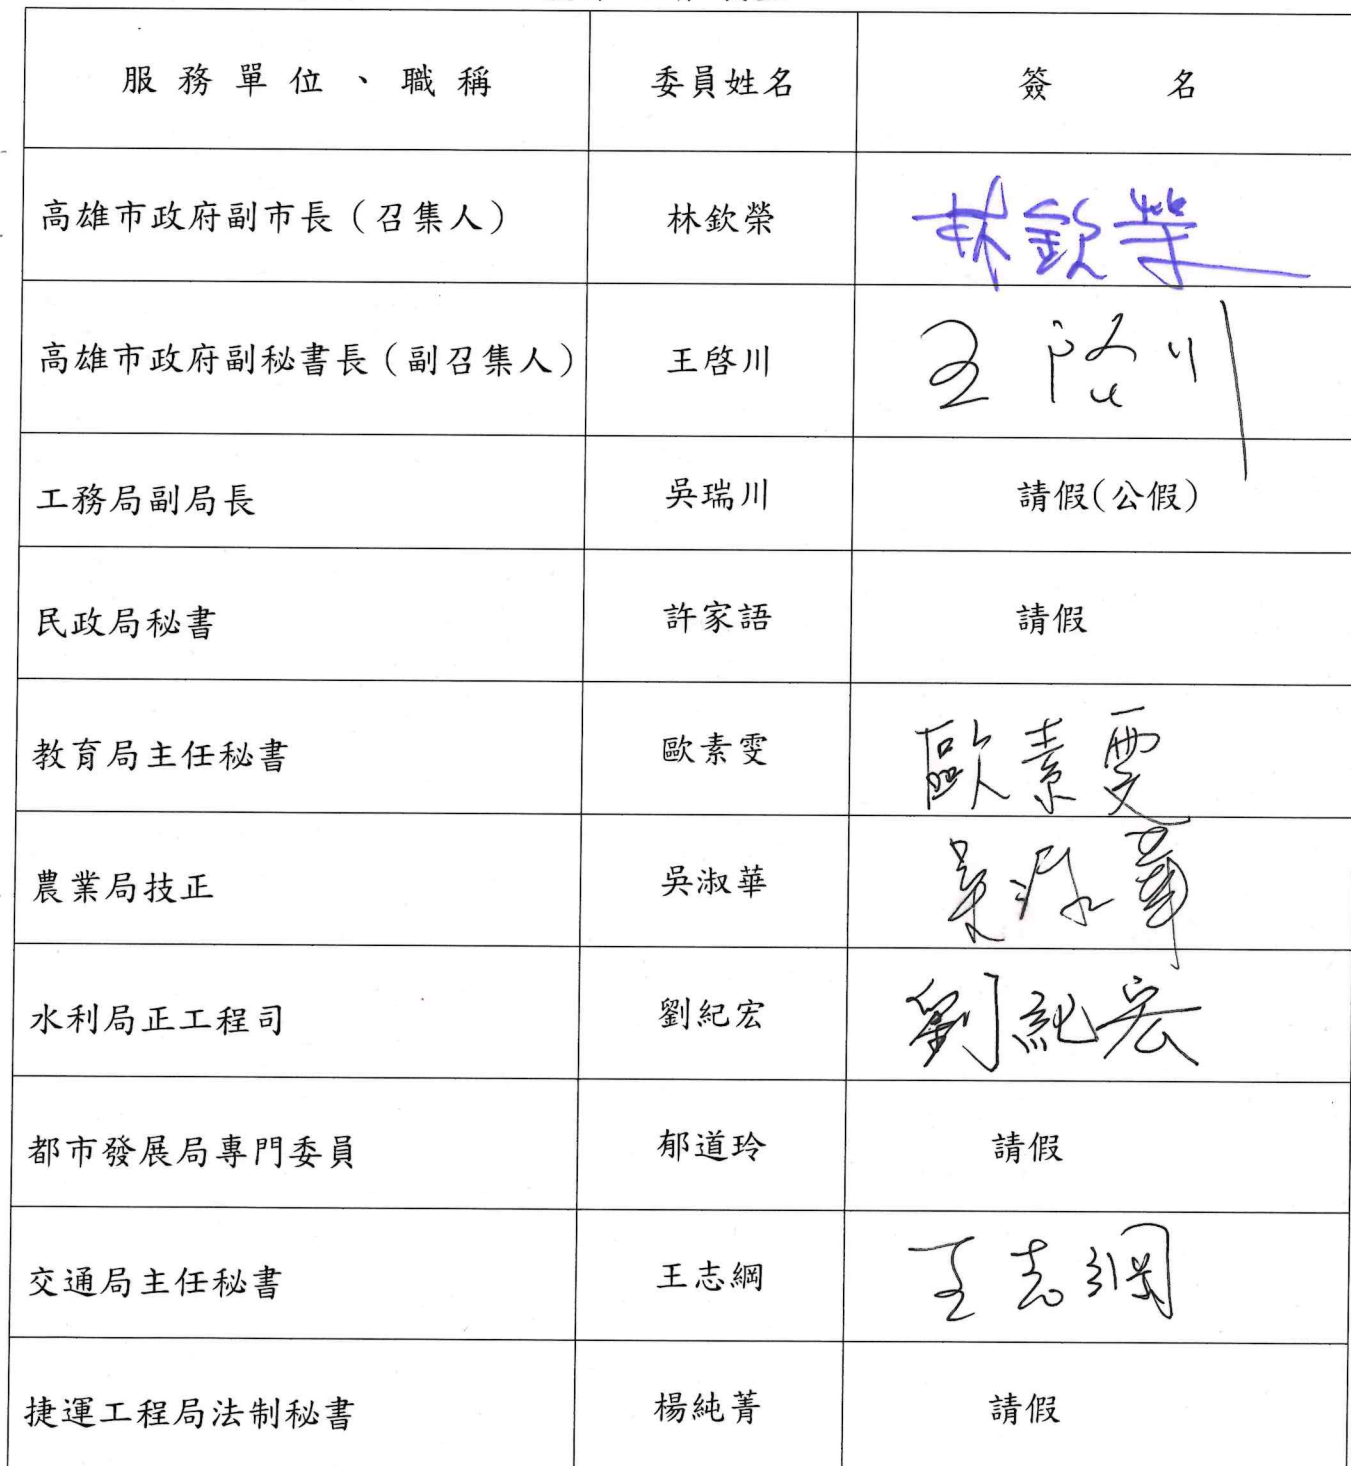 服務單位、職稱 委員姓名 簽名
高雄市政府副市長（召集人） 林欽榮 林欽榮
高雄市政府副秘書長（副召集人） 王啓川 王啓川
工務局副局長 吳瑞川 請假(公假)
民政局秘書 許家語 請假
教育局主任秘書 歐素雯 歐素雯
農業局技正 吳淑華 吳淑華
水利局正工程司 劉紀宏 劉紀宏
都市發展局專門委員 郁道玲 請假
交通局主任秘書 王志綱 王志綱
捷運工程局法制秘書 楊純菁 請假